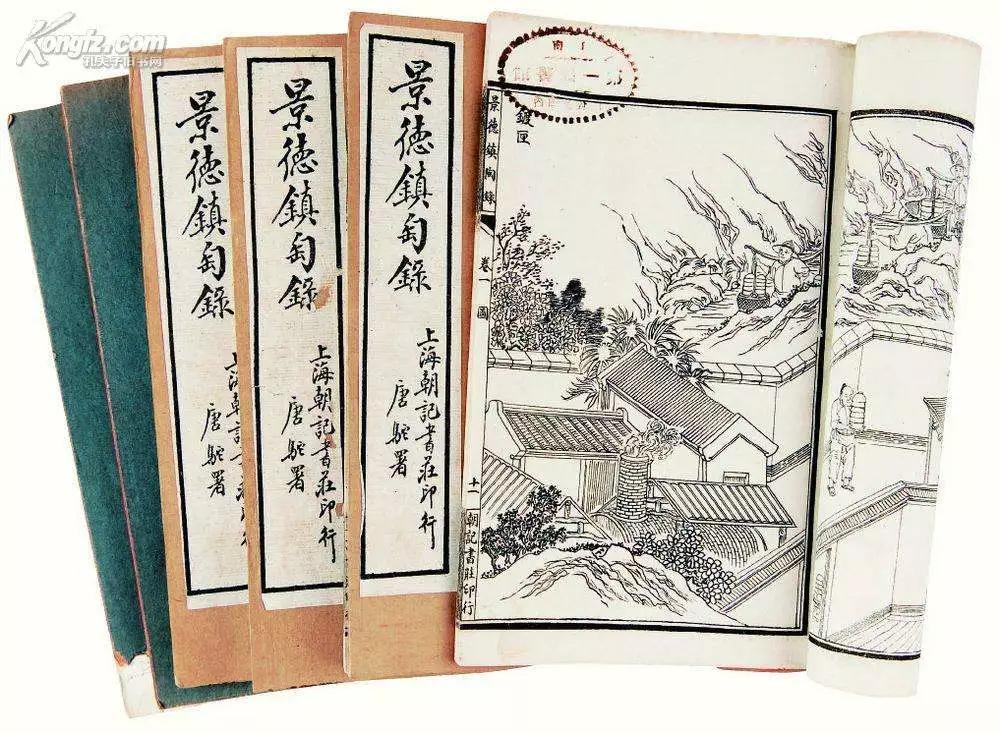 Kongfz.com
孔夫子旧书网
景德鎮匋錄
上海朝記
印行
唐駝署
景德鎮匋錄
上海朝記書莊印行
唐駝署
景德鎮匋錄
上海朝記書莊印行
唐駝署
鍍匣
景德鎮陶錄 卷一 圖 十一 朝記書莊印行